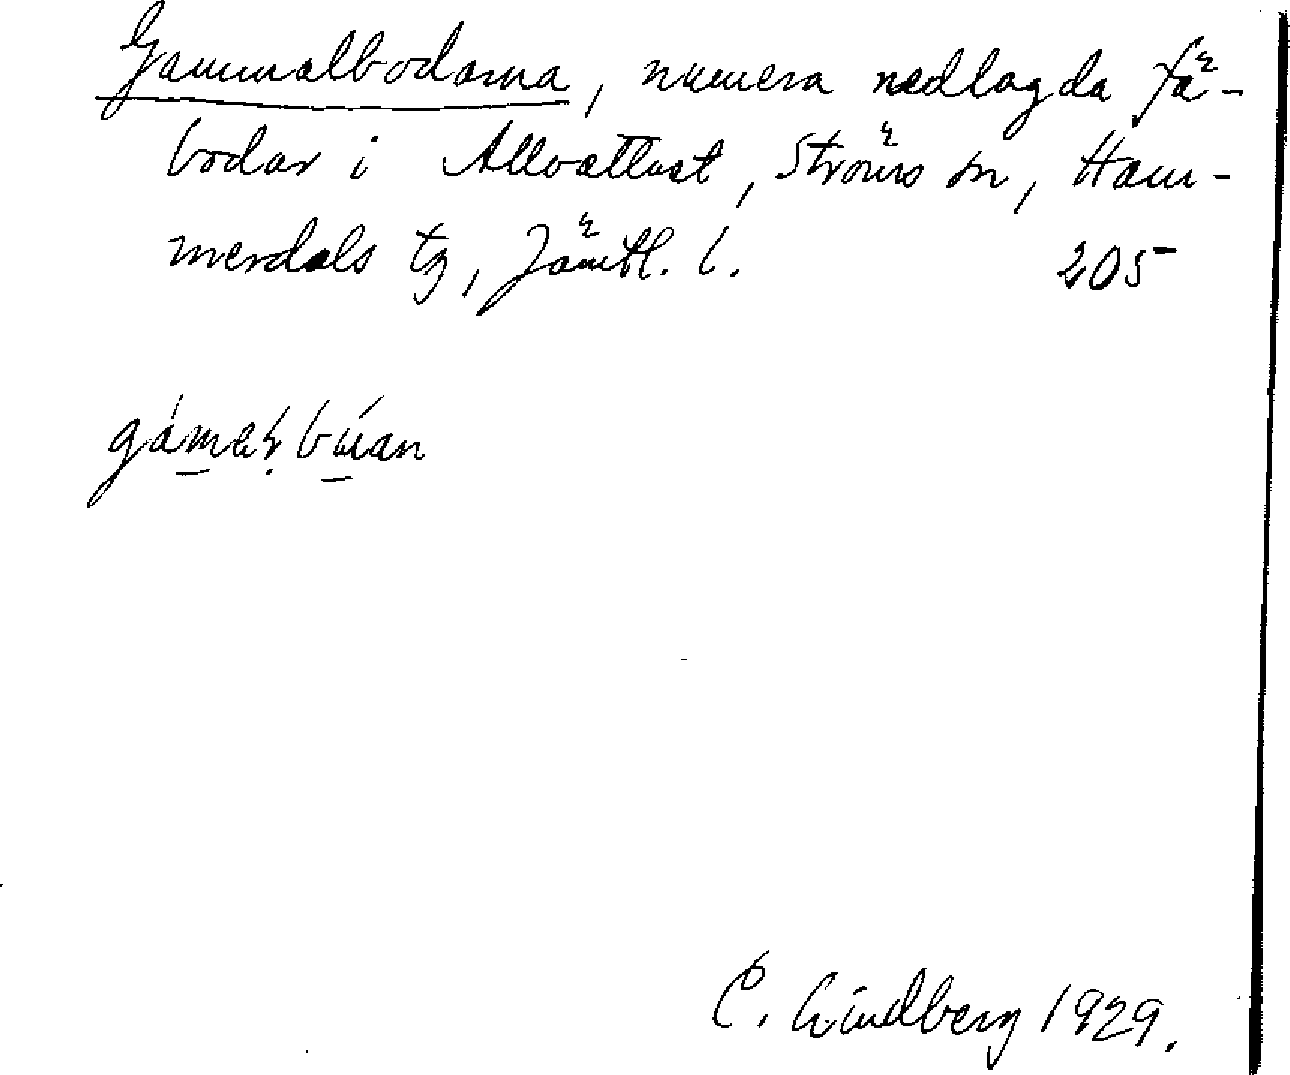 Gammalbodarna, numera nedlagda fä-
bodar i Alloattnet, Ströms sn, Ham-
merdals tg, Jämtl. l. 205
gámaɫbúan
C. Lindberg 1929.